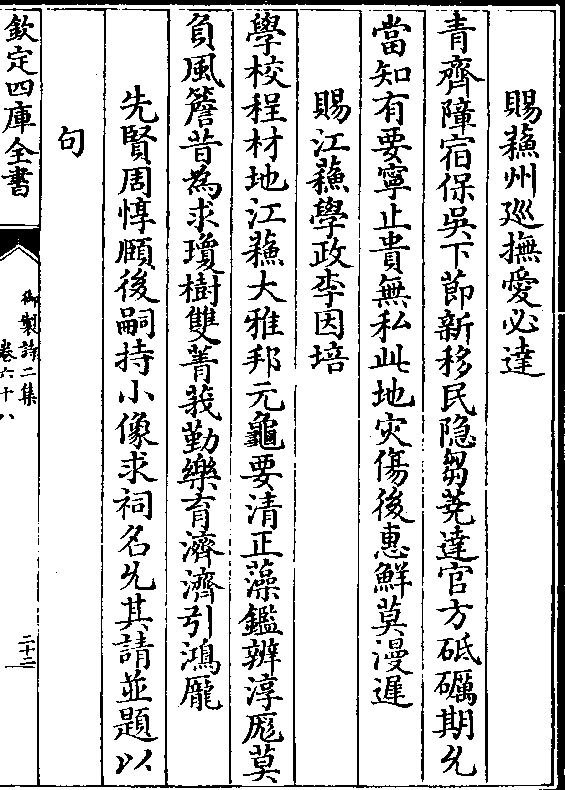 賜蘇州巡撫愛必達
青齊障宿保吳下節新移民隱芻蕘達官方砥礪期允
當知有要寧止貴無私此地灾傷後惠鮮莫漫遲
賜江蘇學政李因培
學校程材地江蘇大雅邦元龜要清正藻鑑辨淳厖莫
負風簷昔為求瓊樹雙菁莪勤樂育濟濟引鴻龎
先賢周惇頤後嗣持小像求祠名允其請並題以
句
欽定四庫全書
御製詩二集
卷六十八
二十二